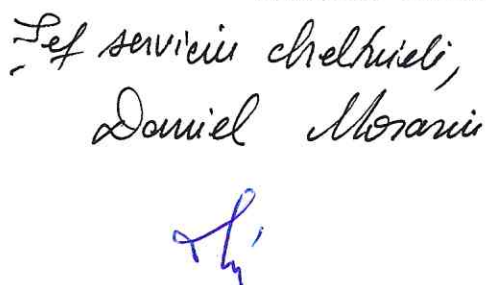 Șef serviciu cheltuieli,
Daniel Morariu